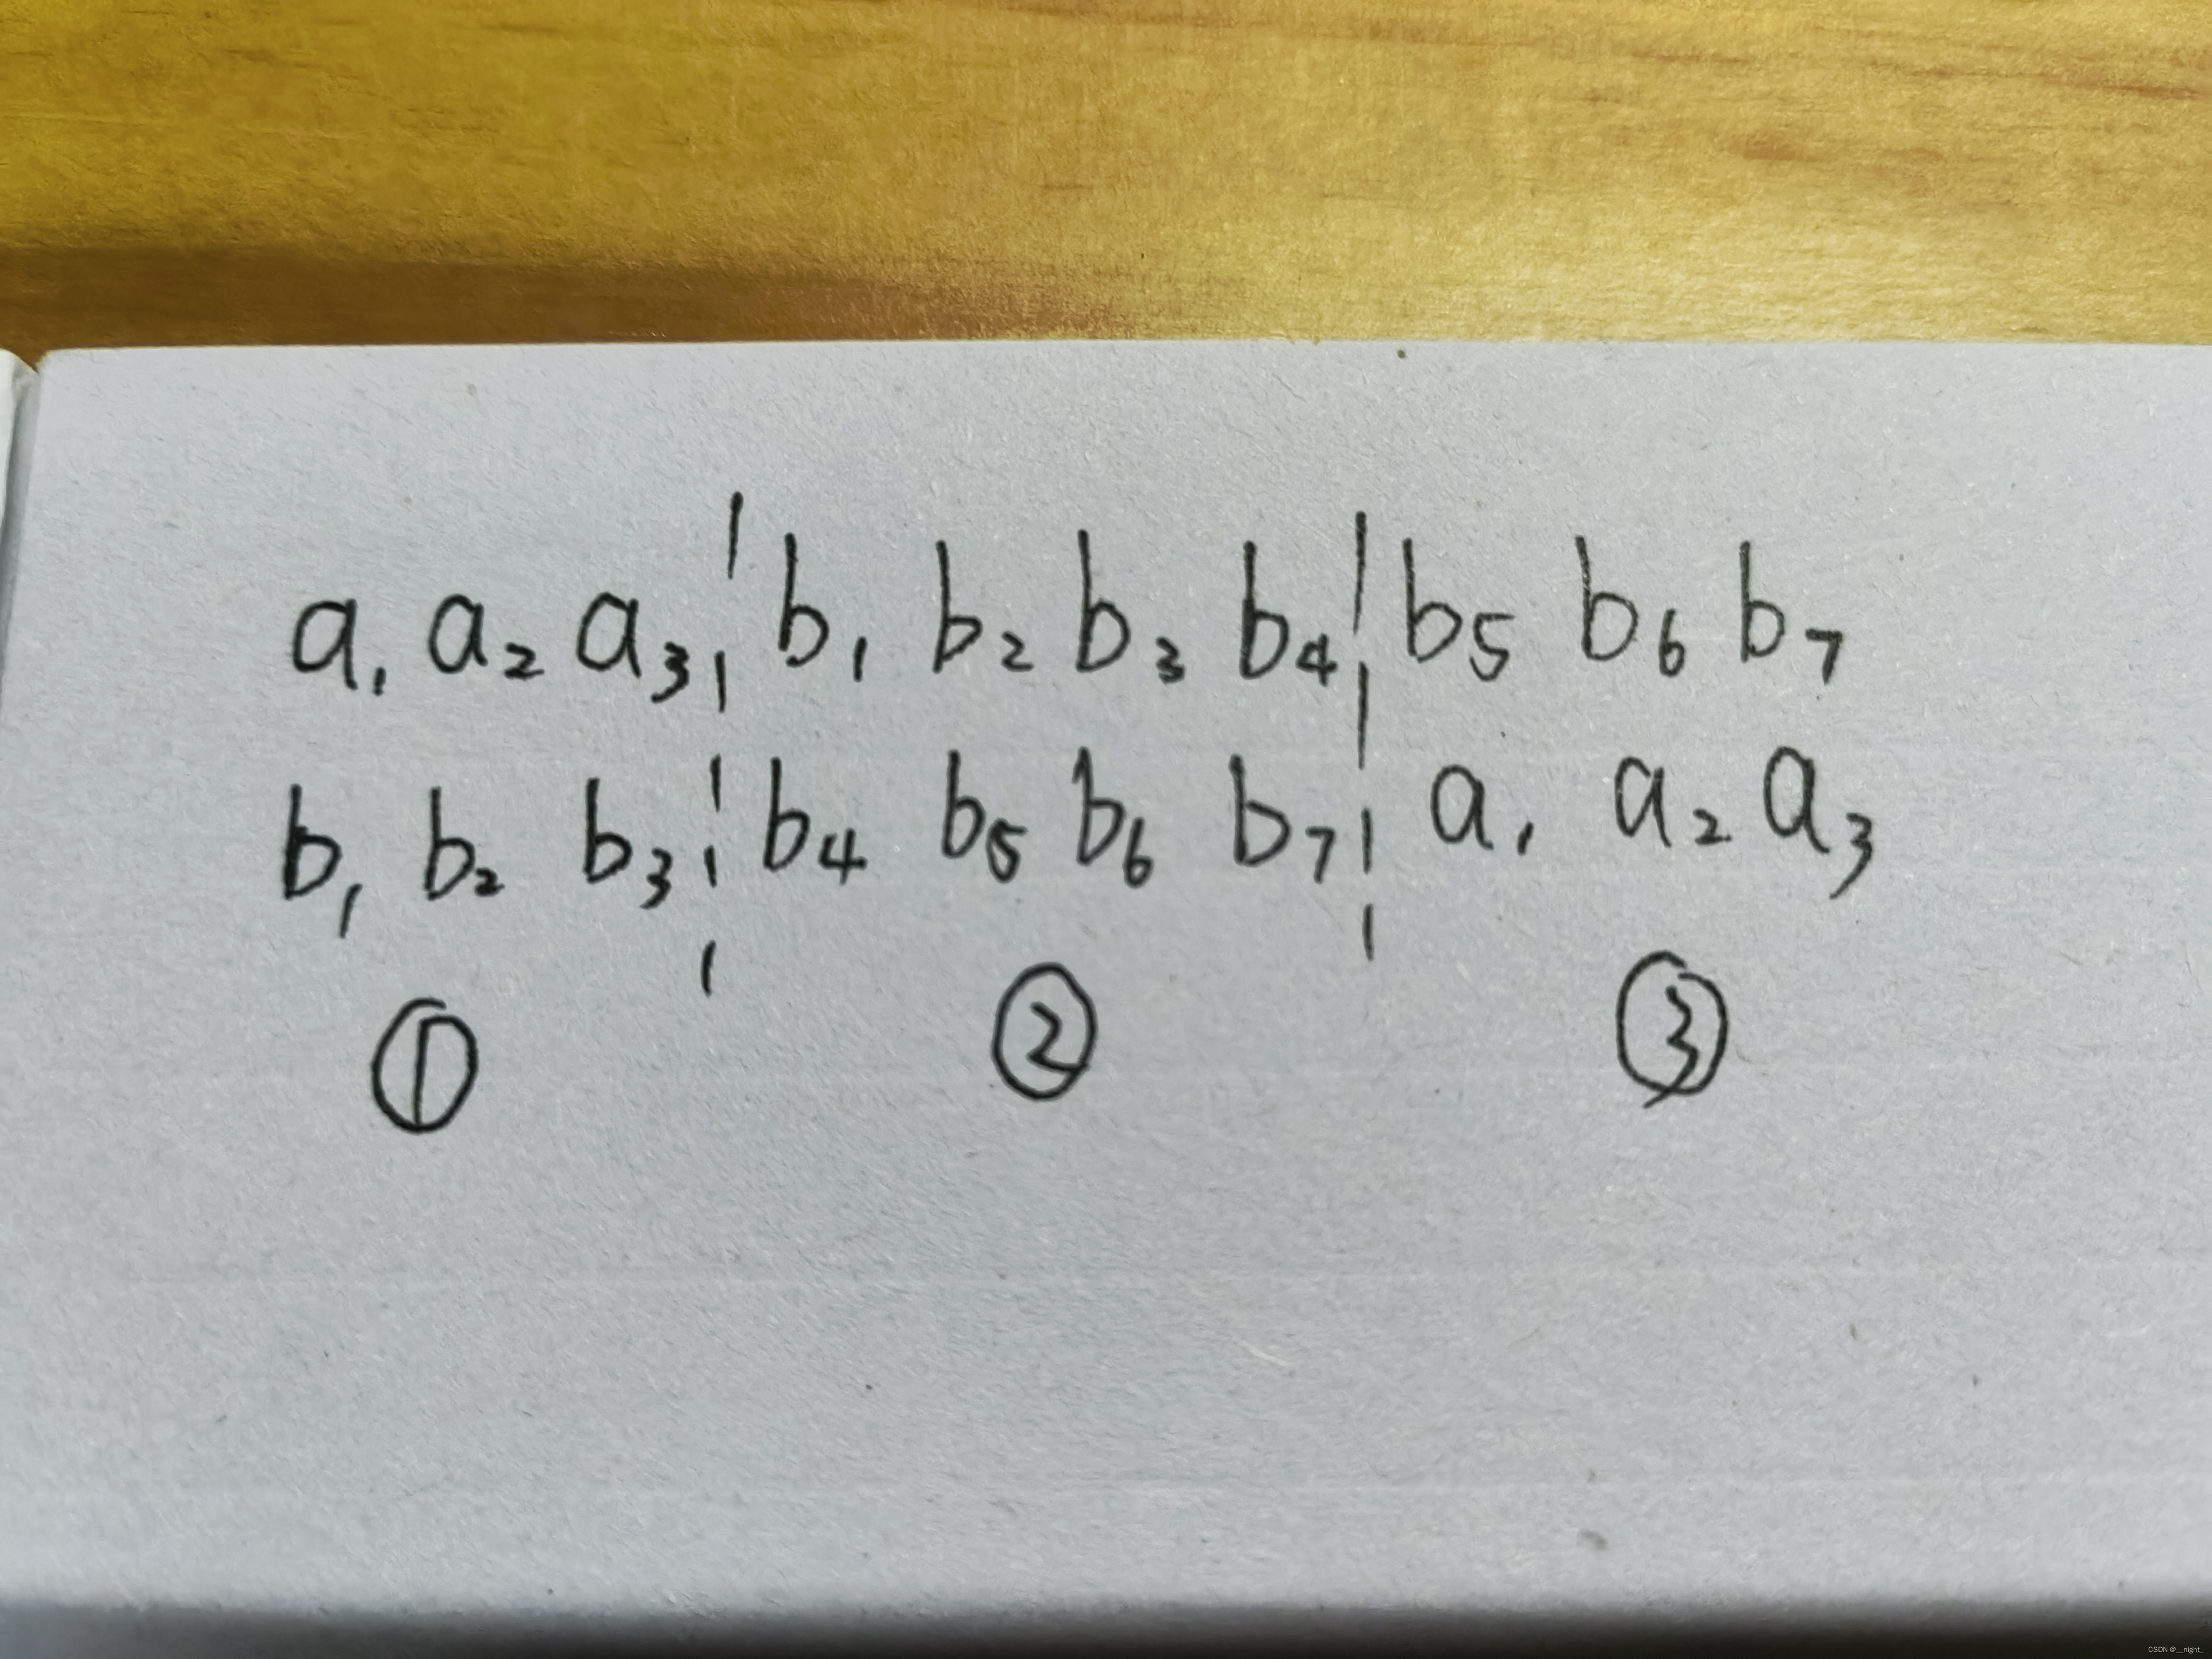 a₁ a₂ a₃ ¦ b₁ b₂ b₃ b₄ ¦ b₅ b₆ b₇
b₁ b₂ b₃ ¦ b₄ b₅ b₆ b₇ ¦ a₁ a₂ a₃
① ② ③
CSDN @__night_